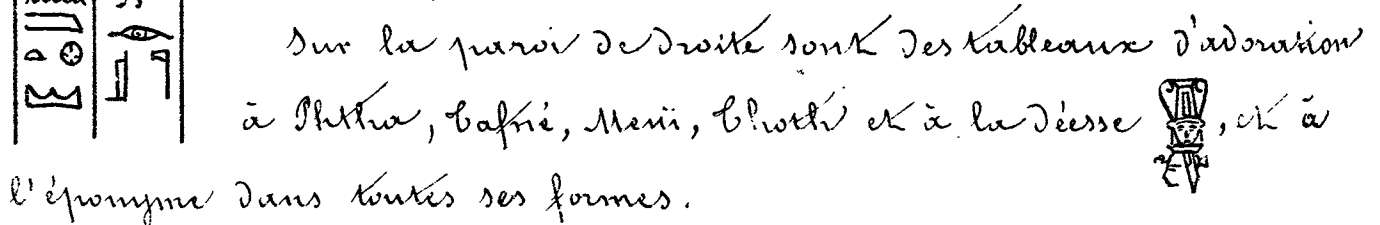 Sur la paroi de droite sont des tableaux d'adoration
à Phtha, Tafné, Meuï, Thoth et à la déesse , et à
l'éponyme dans toutes ses formes.